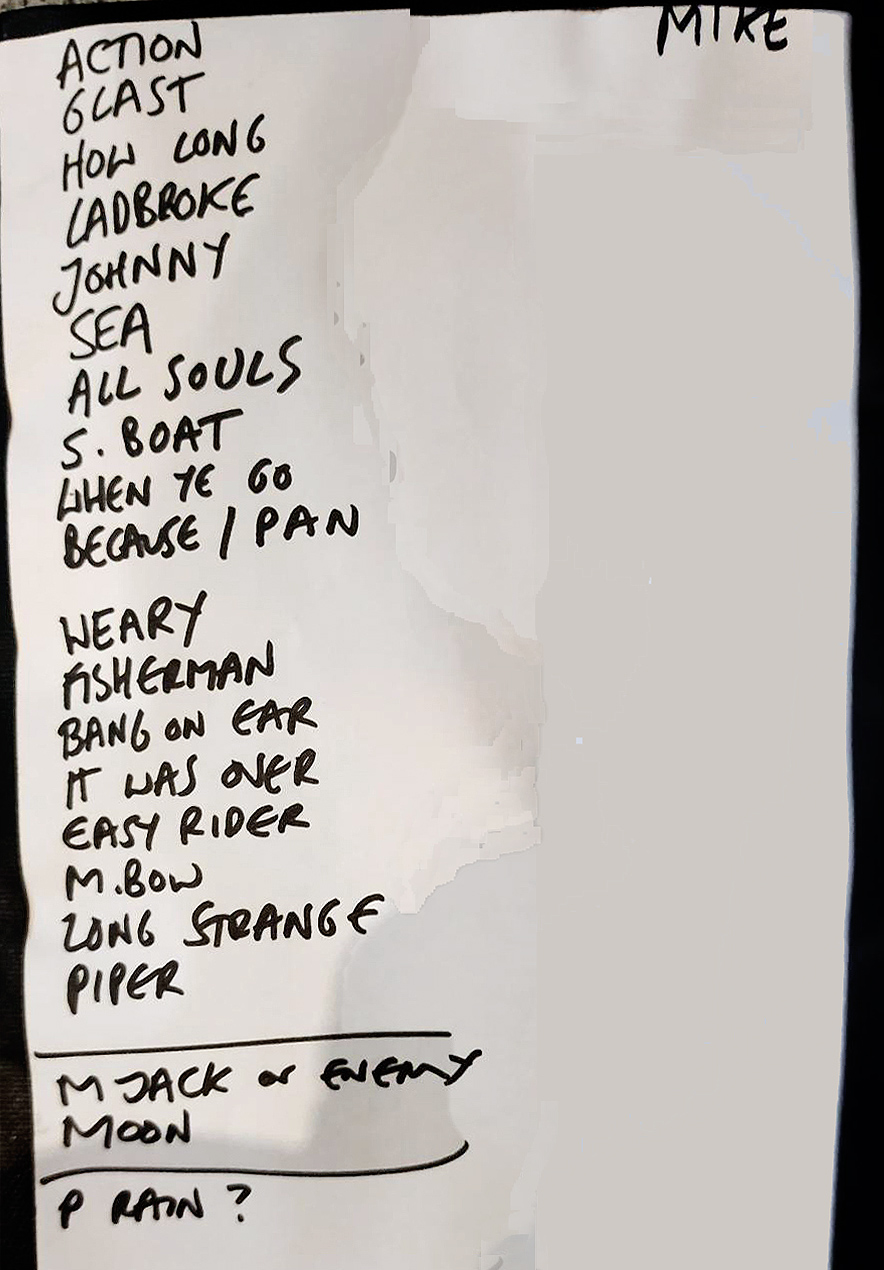 MIKE
ACTION
GLAST
HOW LONG
LADBROKE
JOHNNY
SEA
ALL SOULS
S. BOAT
WHEN YE GO
BECAUSE / PAN
WEARY
FISHERMAN
BANG ON EAR
IT WAS OVER
EASY RIDER
M.BOW
LONG STRANGE
PIPER
M JACK or ENEMY
MOON
P RAIN ?